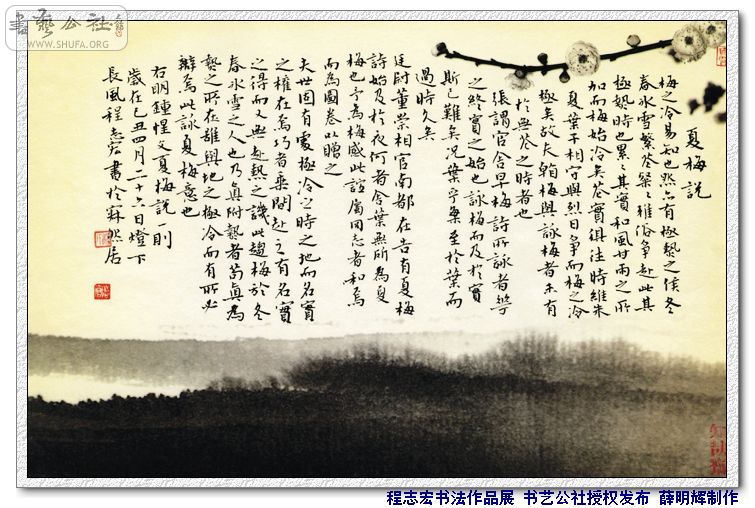 書藝公社
WWW.SHUFA.ORG
夏梅說
梅之冷易知也然亦有極熱之候冬
春冰雪繁花粲粲雅俗爭赴此其
極熱時也累累其實和風甘雨之所
加而梅始冷矣花實俱往時維朱
夏葉干相守與烈日爭而梅之冷
極矣故夫看梅與詠梅者未有
於無花之時者也
張謂官舍早梅詩所詠者花
之終實之始也詠梅而及於實
斯已難矣況葉乎梅至於葉而
過時久矣
廷尉董崇相官南都在告有夏梅
詩始及於葉何者舍葉無所為夏
梅也予為梅感此誼屬同志者和焉
而為圖卷以贈之
夫世固有處極冷之時之地而名實
之權在焉巧者乘間赴之有名實
之得而又無赴熱之譏此趨梅於冬
春冰雪之人也乃真附熱者苟真為
熱之所在雖與地之極冷而有所必
辯焉此詠夏梅意也
右明鍾惺文夏梅說一則
歲在己丑四月二十六日燈下
長風程志宏書於寂然居
程志宏书法作品展 书艺公社授权发布 薛明辉制作